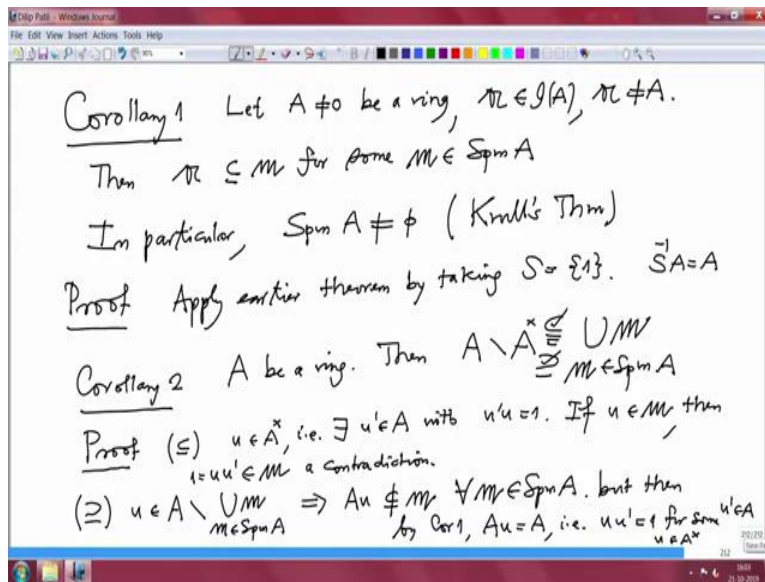 Dilip Patil - Windows Journal
File Edit View Insert Actions Tools Help
Corollary 1 Let A ≠ 0 be a ring, 𝔞 ∈ 𝓘(A), 𝔞 ≠ A.
Then 𝔞 ⊆ 𝔪 for some 𝔪 ∈ Spm A
In particular, Spm A ≠ ϕ (Krull's Thm)
Proof Apply earlier theorem by taking S = {1}. S⁻¹A = A
Corollary 2 A be a ring. Then A \ Aˣ = ⋃ 𝔪
⊆ ⊇ 𝔪 ∈ Spm A
Proof (⊆) u ∈ Aˣ, i.e. ∃ u' ∈ A with u'u = 1. If u ∈ 𝔪, then
1 = uu' ∈ 𝔪 a contradiction.
(⊇) u ∈ A \ ⋃ 𝔪 ⇒ Au ⊈ 𝔪 ∀ 𝔪 ∈ Spm A. but then
𝔪 ∈ Spm A by Cor 1, Au = A, i.e. uu' = 1 for some u' ∈ A
u ∈ Aˣ
212/212
212
16:03
21-10-2019